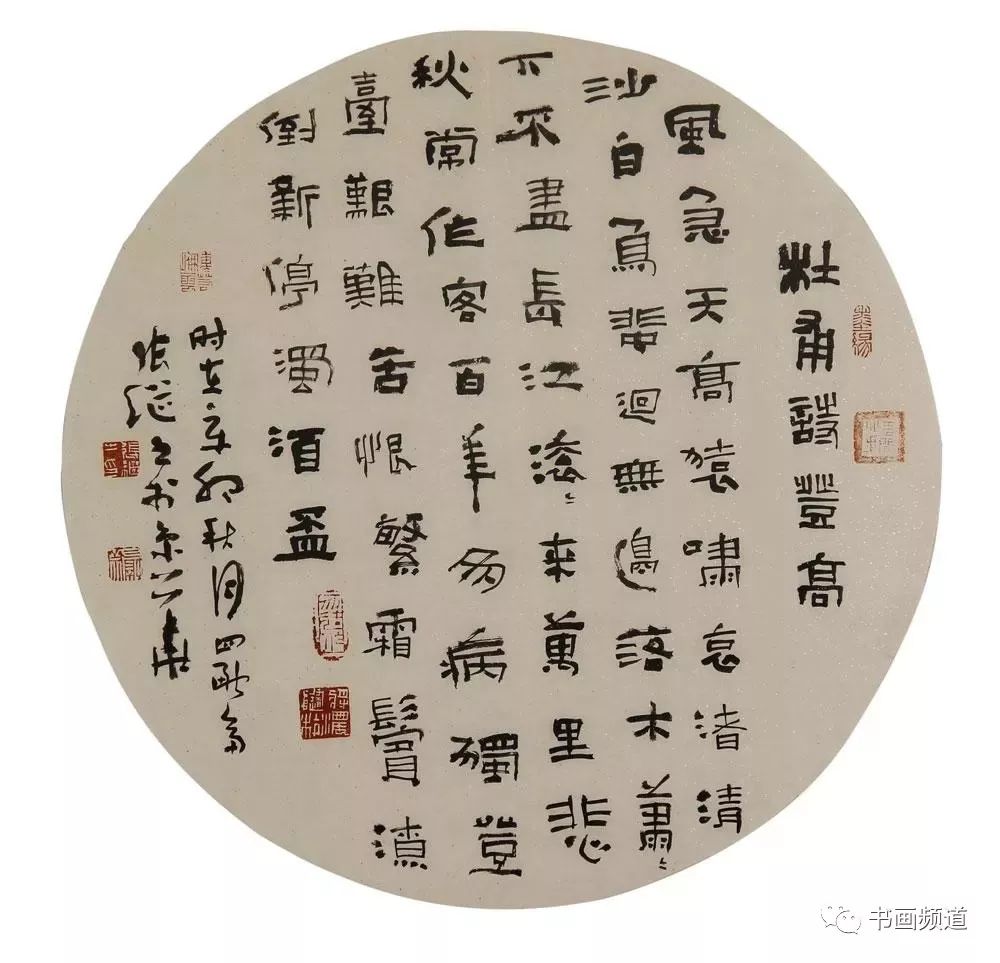 杜甫詩登髙
風急天髙猿嘯哀渚清
沙白鳥飛迴無邊落木蕭〻
下不盡長江滚〻来萬里悲
秋常作客百年多病獨登
臺艱難苦恨繁霜鬢潦
倒新停濁酒盃
时在辛卯秋月四
张继书京華
书画频道